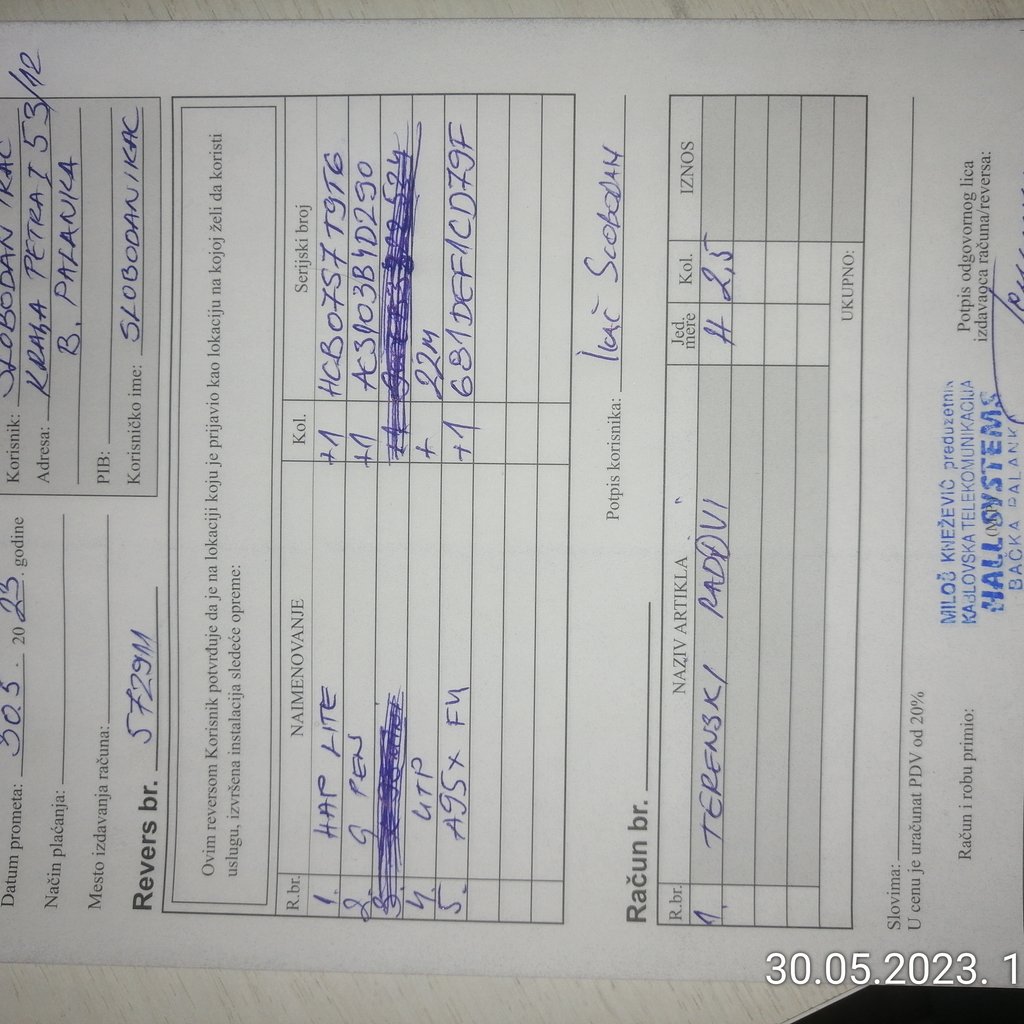 Datum prometa: 30.5. 20 23. godine
Način plaćanja:
Mesto izdavanja računa:
Revers br. 57291
Korisnik: SLOBODAN IKAČ
Adresa: KRALJA PETRA I 53/12
B. PALANKA
PIB:
Korisničko ime: SLOBODANIKAC
Ovim reversom Korisnik potvrđuje da je na lokaciji koju je prijavio kao lokaciju na kojoj želi da koristi
uslugu, izvršena instalacija sledeće opreme:
R.br. NAIMENOVANJE Kol. Serijski broj
1. HAP LITE +1 HCB0757T9T6
2. G PEN +1
3.
4. UTP + 22M
5. A95X F4 +1 681DEF1CD79F
Potpis korisnika: Ikač Slobodan
Račun br.
R.br. NAZIV ARTIKLA Jed. mere Kol. IZNOS
1. TERENSKI RADOVI H 2,5
UKUPNO:
Slovima:
U cenu je uračunat PDV od 20%
Račun i robu primio:
MILOŠ KNEŽEVIĆ preduzetnik
KABLOVSKA TELEKOMUNIKACIJA
HALL SYSTEMS
BAČKA PALANKA
(M.P.)
Potpis odgovornog lica
izdavaoca računa/reversa:
30.05.2023. 1